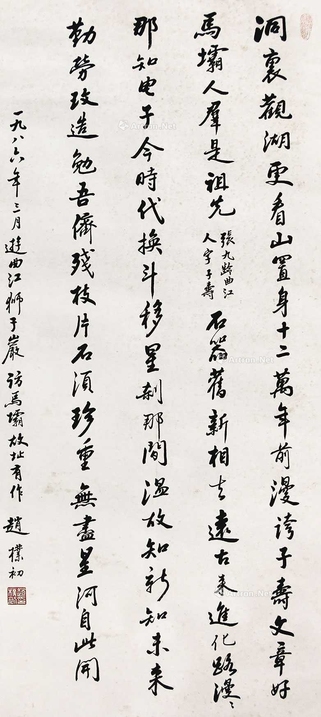 洞裏觀湖更看山置身十二萬年前漫誇子壽文章好
馬壩人羣是祖先張九齡曲江人字子壽石器舊新相去遠古來進化路漫〻
那知电子今時代換斗移星刹那間溫故知新知未來
勤勞改造勉吾儕殘枝片石須珍重無盡星河自此開
一九八六年三月遊曲江獅子巖訪馬壩故址有作 趙樸初